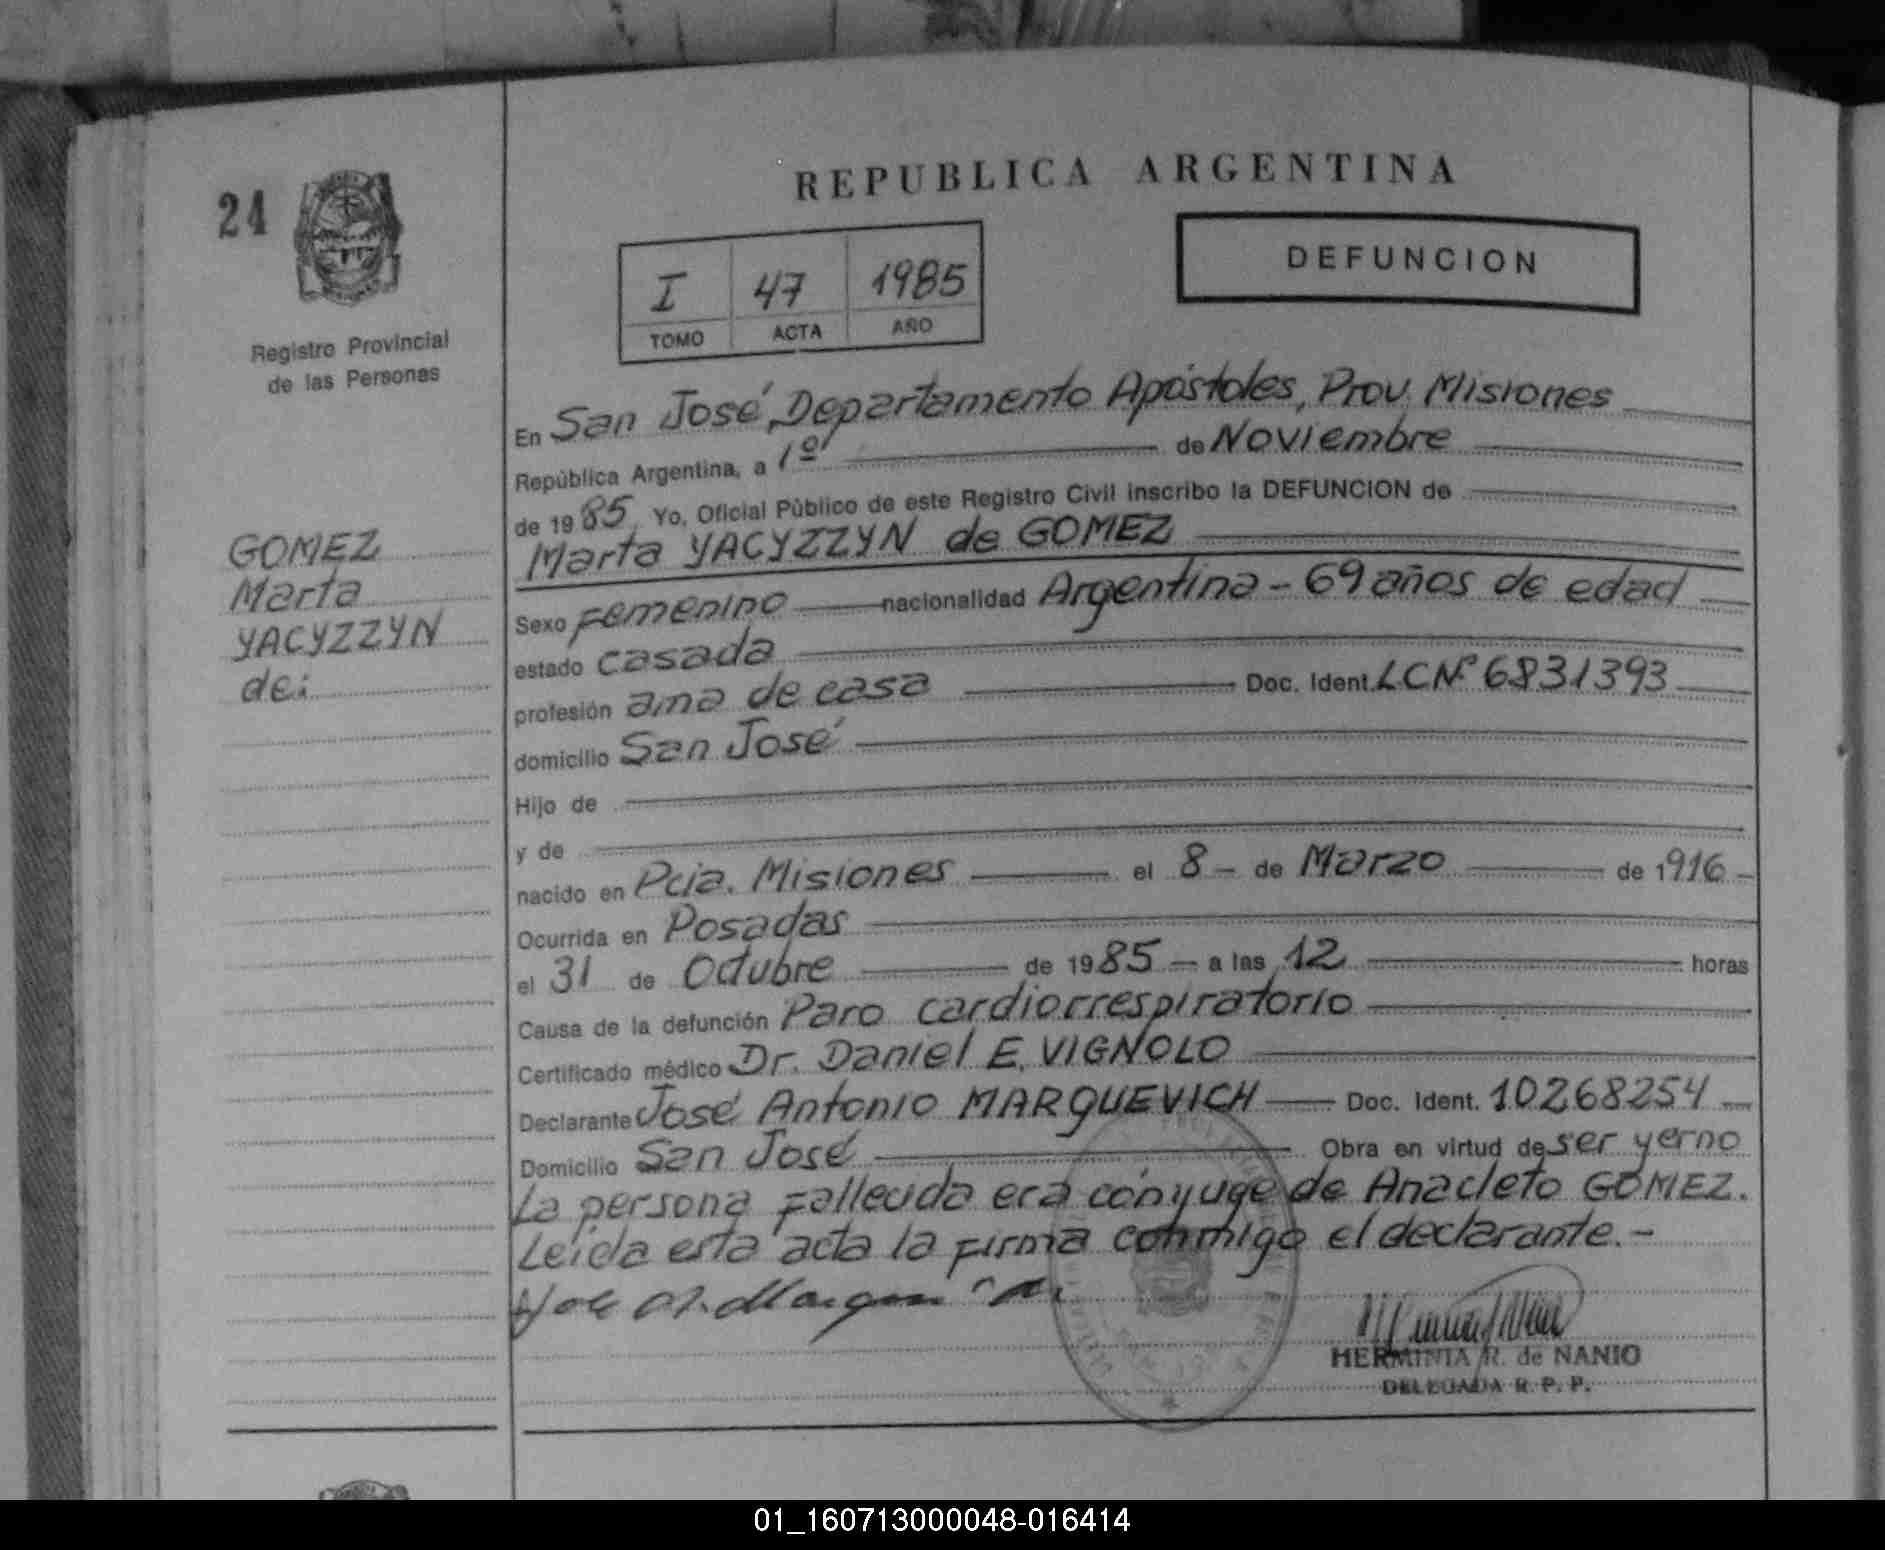 24
Registro Provincial
de las Personas
GOMEZ
Marta
YACYZZYN
de:
REPUBLICA ARGENTINA
I 47 1985
TOMO ACTA AÑO
DEFUNCION
En San José, Departamento Apóstoles, Prov. Misiones
República Argentina, a 1º de Noviembre
de 1985. Yo, Oficial Público de este Registro Civil inscribo la DEFUNCION de
Marta YACYZZYN de GOMEZ
Sexo femenino nacionalidad Argentina - 69 años de edad
estado casada
profesión ama de casa Doc. Ident. LC Nº 6831393
domicilio San José
Hijo de
y de
nacido en Pcia. Misiones el 8 - de Marzo de 1916 -
Ocurrida en Posadas
el 31 de Octubre de 1985 - a las 12 horas
Causa de la defunción Paro cardiorrespiratorio
Certificado médico Dr. Daniel E. VIGNOLO
Declarante José Antonio MARQUEVICH Doc. Ident. 10268254
Domicilio San José Obra en virtud de ser yerno
La persona fallecida era cónyuge de Anacleto GOMEZ.
Leída esta acta la firma conmigo el declarante. -
HERMINIA R. de NANIO
DELEGADA R. P. P.
01_160713000048-016414